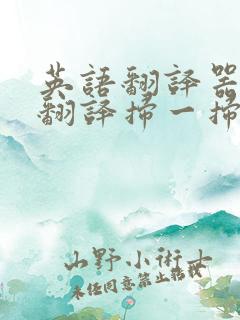 英語翻譯器
翻譯掃一掃
山野小術士
未经同意禁止转载